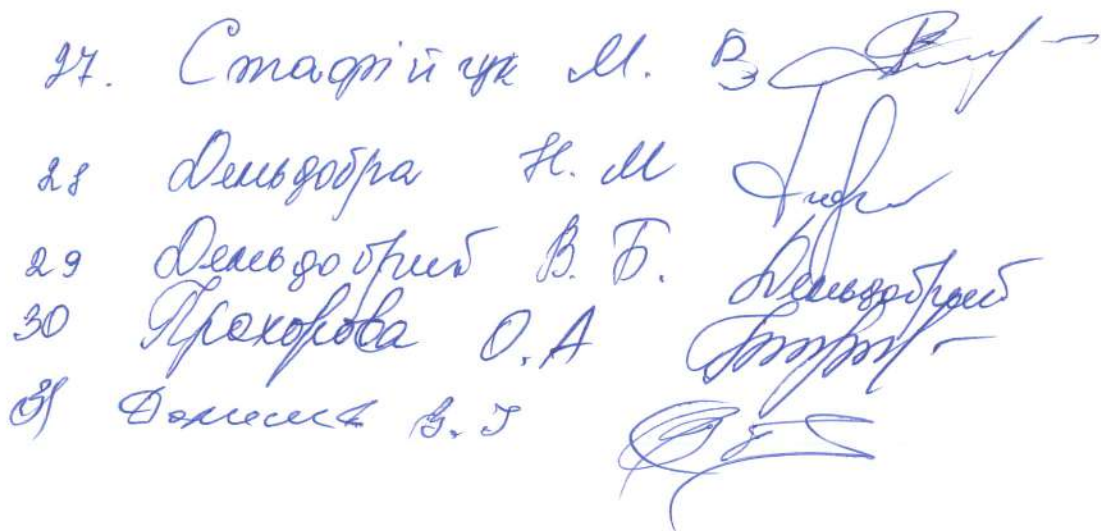 27. Стафійчук М. В
28 Демьдобра Н. М
29 Демьдобрий В. Б. Демьдобрий
30 Прохорова О. А
31 В. І